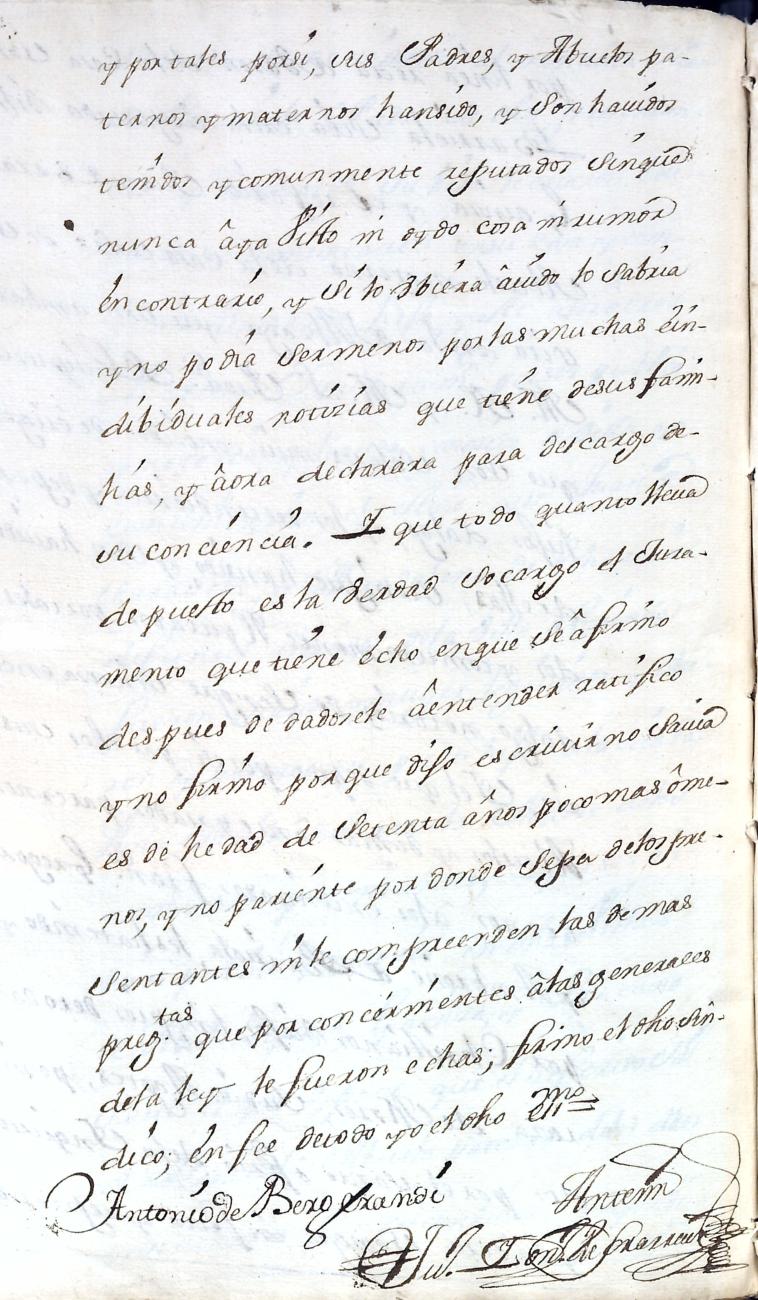 y por tales por si, sus Padres, y Abuelos pa-
ternos y maternos han sido, y son havidos
tenidos y comunmente reputados sinque
nunca âya Visto ni oydo cosa ni rumor
en contrario, y si lo Vbiera âuido lo sabria
y no podia ser menos por las muchas é in-
dibiduales notizias que tiene de sus fami-
lias, y âora declarara para descargo de
su conciencia. Y que todo quanto lleua
depuesto es la Verdad so cargo el Jura-
mento que tiene écho en que se âfirmo
despues de dadosele âentender ratifico
y no firmo por que dijo escriuir no sauia
es de hedad de setenta âños poco mas ôme-
nos, y no pariente por donde sepa delos pre-
sentantes ni le compreenden las demas
preg.tas que por concernientes âlas generales
dela ley le fueron echas; firmo el dho Sin-
dico; én fee de todo yo el dho essno
Antonio de Berograndi
Antemi